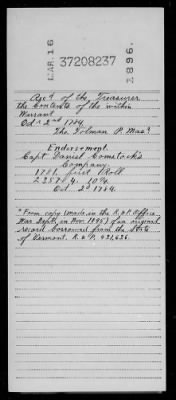 MAR 16
37208237
1896.
Recd of the Treasurer
the Contents of the within
Warrant
Oct 2nd 1784
Tho. Tolman P. Masr.
Endorsement
Capt Daniel Comstock's
Company.
1781 first Roll
235£ 4. 10¾
Oct 2d 1784.
"From copy (made in the R & P Office
War Dept, in Nov. 1895) of an original
record borrowed from the State
of Vermont. R. & P. 431,636.